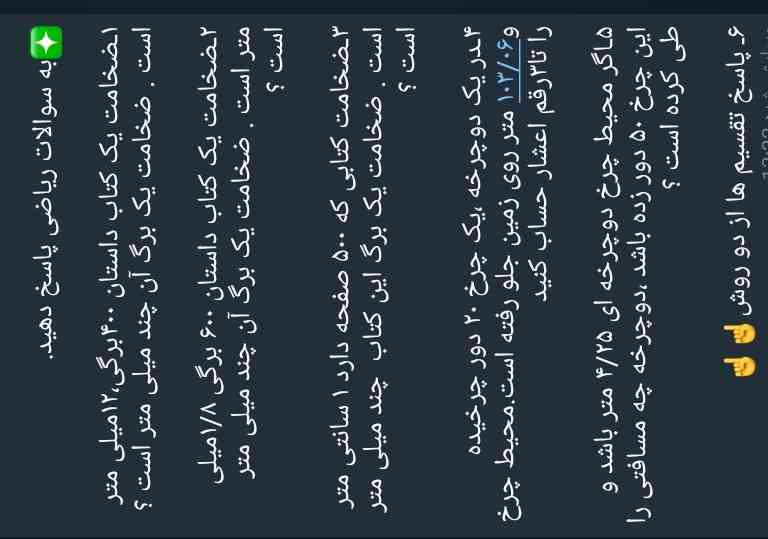 به سوالات ریاضی پاسخ دهید.
۱ضخامت یک کتاب داستان ۴۰۰برگی،۱۲میلی متر
است . ضخامت یک برگ آن چند میلی متر است ؟
۲ضخامت یک کتاب داستان ۶۰۰ برگی ۱/۸میلی
متر است . ضخامت یک برگ آن چند میلی متر
است ؟
۳ضخامت کتابی که ۵۰۰ صفحه دارد ۱ سانتی متر
است . ضخامت یک برگ این کتاب چند میلی متر
است ؟
۴در یک دوچرخه ،یک چرخ ۲۰ دور چرخیده
و۱۰۳/۰۶ متر روی زمین جلو رفته است.محیط چرخ
را تا۳رقم اعشار حساب کنید
۵اگر محیط چرخ دوچرخه ای ۴/۲۵ متر باشد و
این چرخ ۵۰ دور زده باشد ،دوچرخه چه مسافتی را
طی کرده است ؟
۶_ پاسخ تقسیم ها از دو روش 👇👇